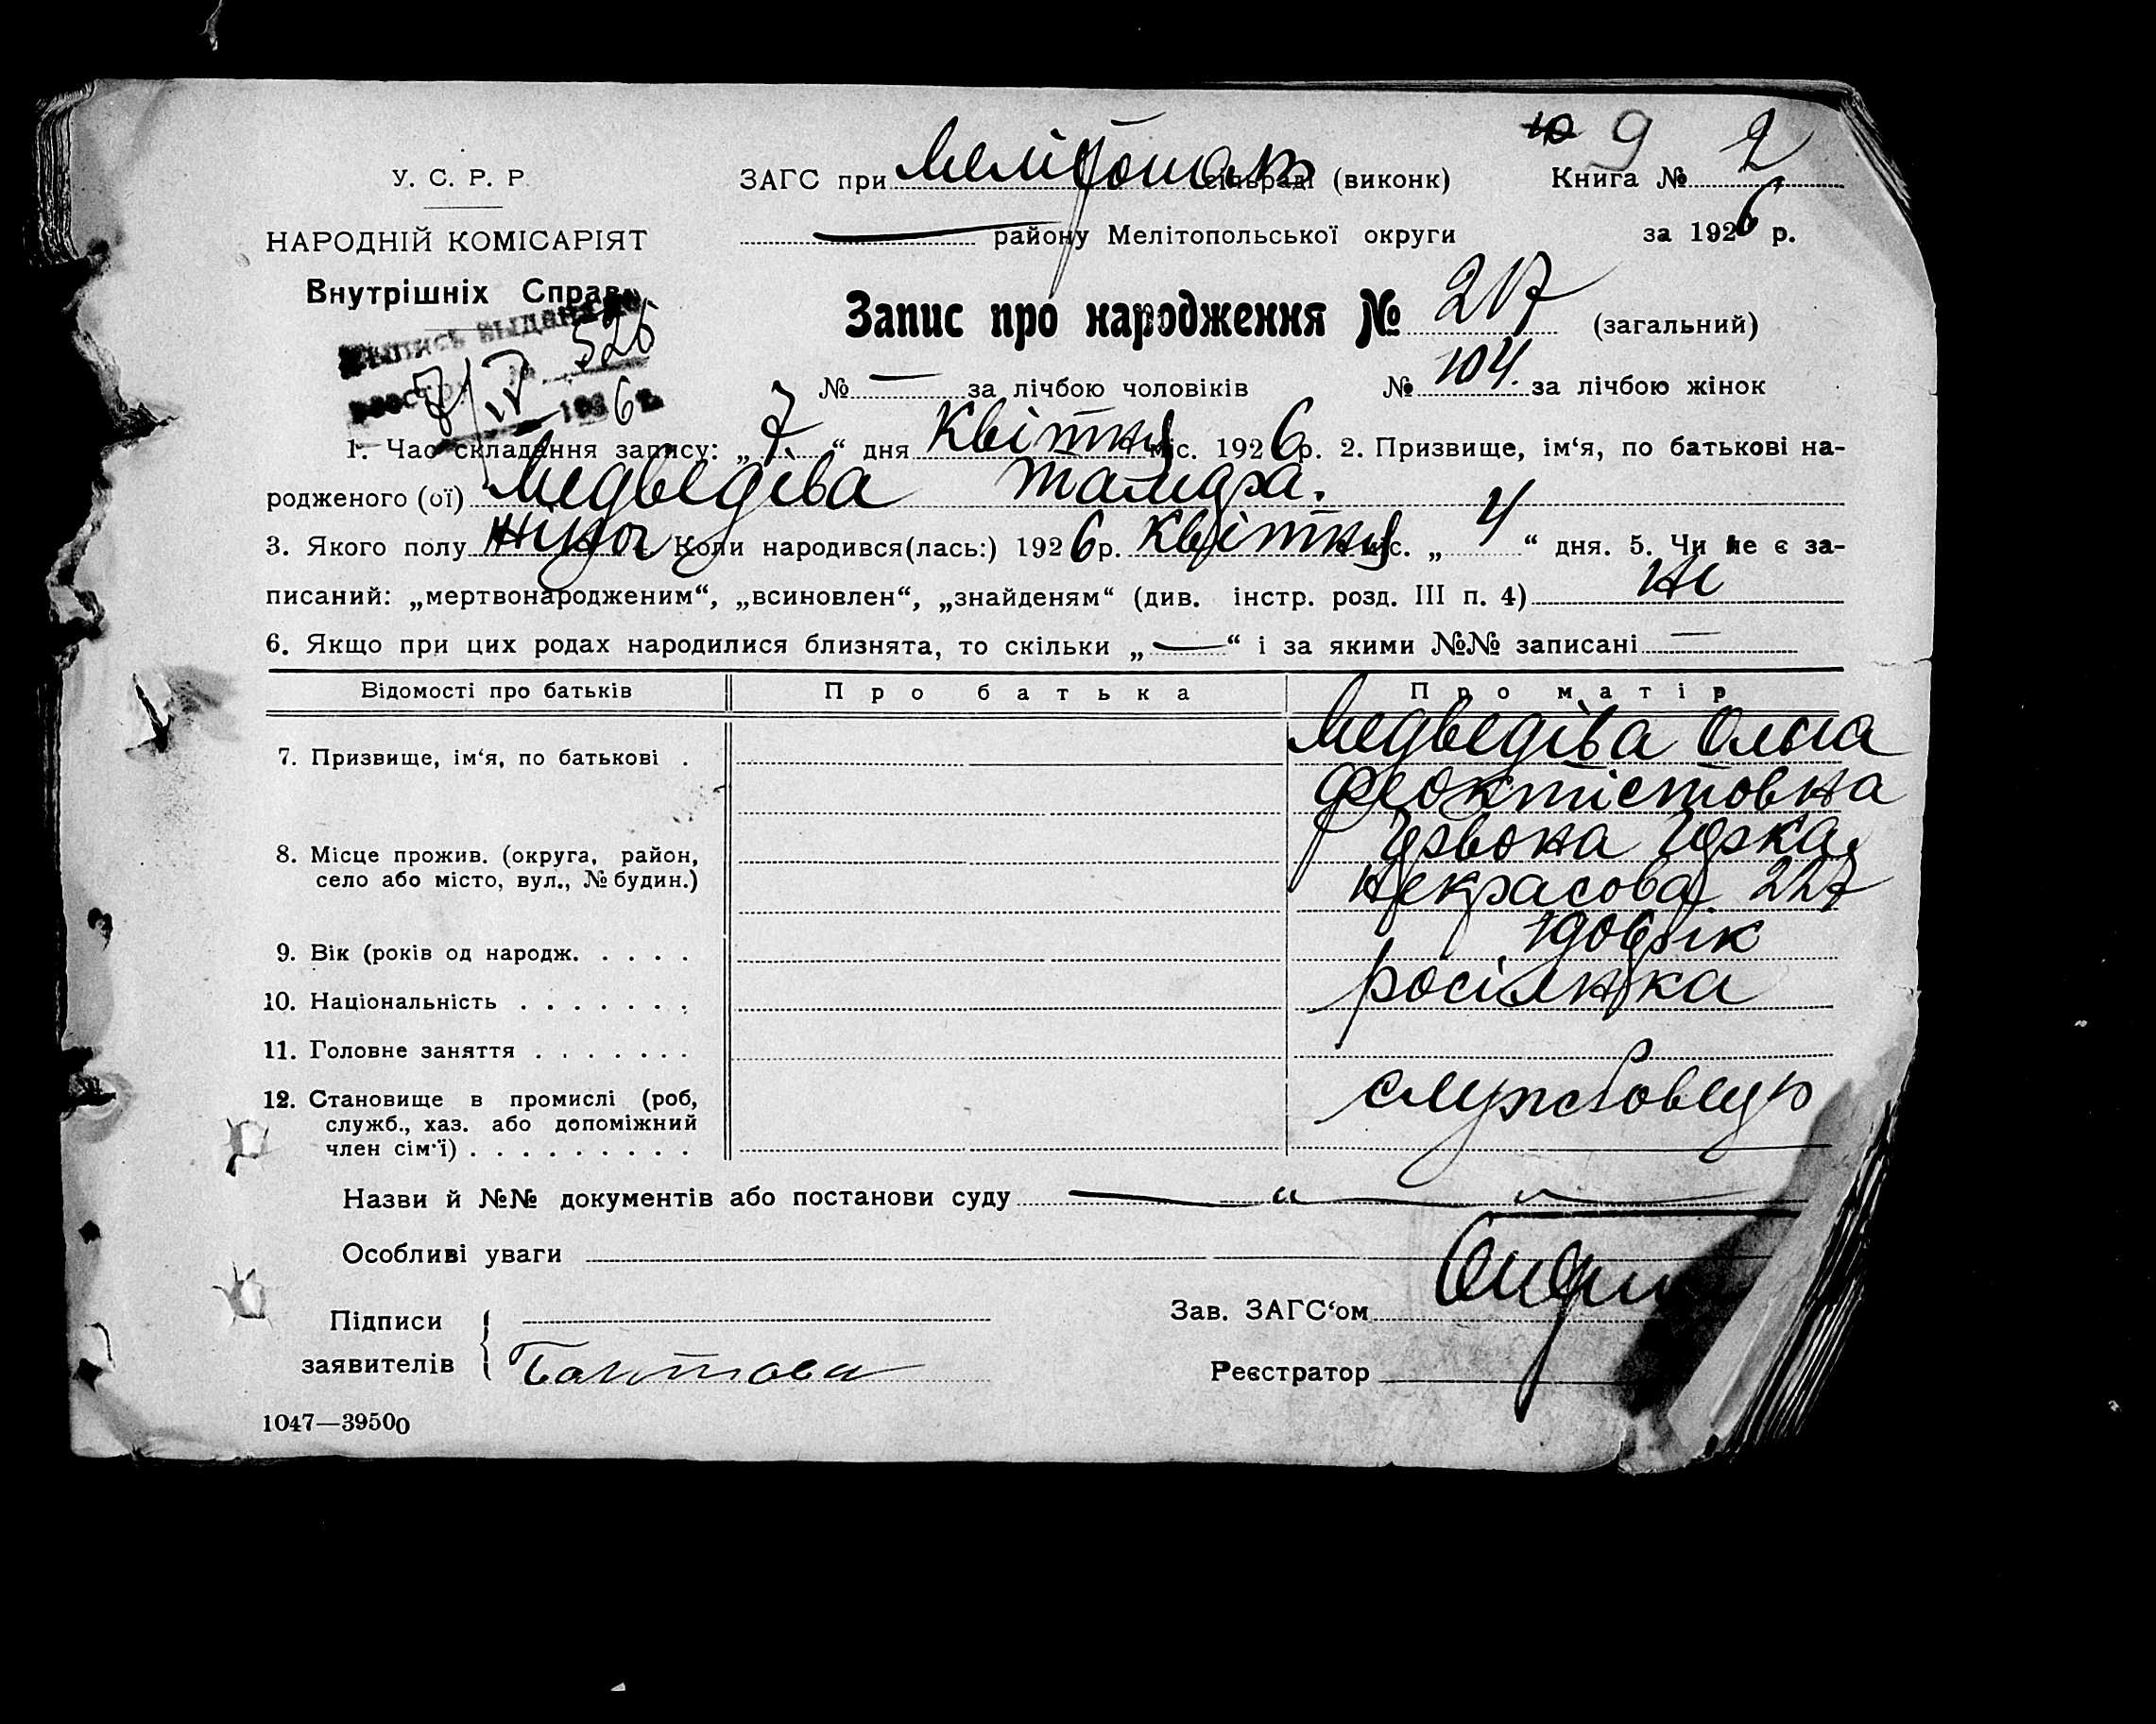 9
У. С. Р. Р. ЗАГС при сільраді (виконк) Книга № 2
НАРОДНІЙ КОМІСАРІЯТ району Мелітопольської округи за 1926 р.
Внутрішніх Справ
Запис про народження № 217 (загальний)
выдана 526
7/IV 1926 г.
№ — за лічбою чоловіків № 104. за лічбою жінок
1. Час складання запису: „7“ дня Квітня міс. 1926 р. 2. Призвище, ім‘я, по батькові на-
родженого (ої) Медведєва Тамара.
3. Якого полу Коли народився(лась:) 1926 р. Квітня міс. „4“ дня. 5. Чи не є за-
писаний: „мертвонародженим“, „всиновлен“, „знайденям“ (див. інстр. розд. III п. 4) Ні
6. Якщо при цих родах народилися близнята, то скільки „—“ і за якими №№ записані —
Відомості про батьків Про батька Про матір
7. Призвище, ім‘я, по батькові . Медведєва Ольга
Феоктістовна
8. Місце прожив. (округа, район, Гірка,
село або місто, вул., № будин.) Некрасова 227
9. Вік (років од народж. . . . . 1906 рік
10. Національність . . . . . . . росіянка
11. Головне заняття . . . . . . .
12. Становище в промислі (роб,
служб., хаз. або допоміжний
член сім‘ї) . . . . . . . . .
службовець
Назви й №№ документів або постанови суду — „ —
Особливі уваги
Підписи
заявителів
Зав. ЗАГС‘ом
Реєстратор
1047—39500